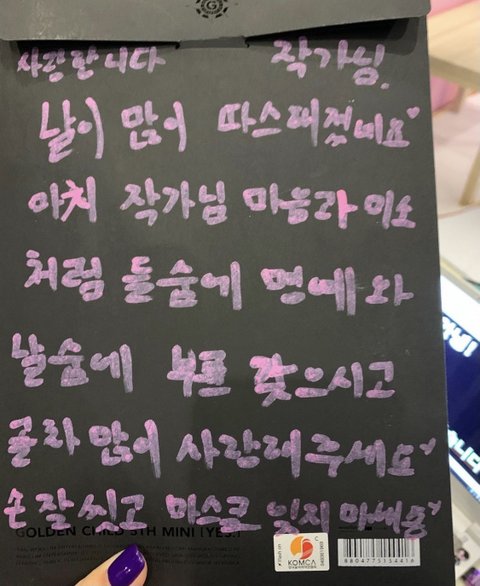 사랑합니다 작가님.
날이 많이 따스해졌네요♡
마치 작가님 마음과 미소
처럼 들숨에 명예와
날숨에 부를 갖으시고
골차 많이 사랑해주세요♡
손 잘 씻고 마스크 잊지 마세용♡
GOLDEN CHILD 5TH MINI [YES.]
KOMCA